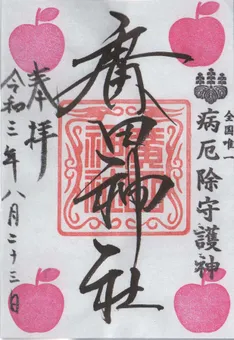 全国唯一
病厄除守護神
廣田神社
奉拝
令和三年八月二十三日